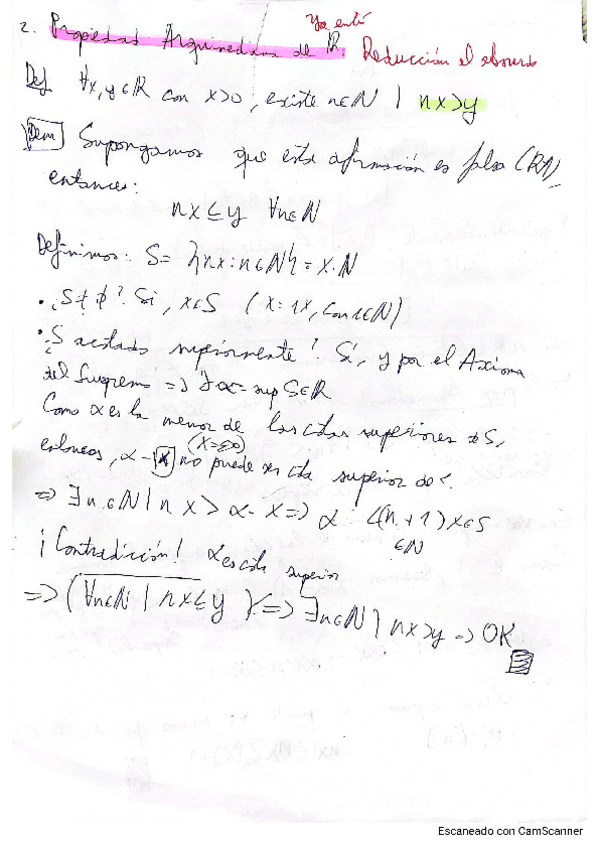 Ya está
2. Propiedad Arquimediana de ℝ: Reducción al absurdo
Def ∀x,y∈ℝ con x>0, existe n∈ℕ | nx>y
Dem Supongamos que esta afirmación es falsa (RA),
entonces:
nx ≤ y ∀n∈ℕ
Definimos: S= {nx: n∈ℕ} = x·ℕ
• ¿S≠∅? Si, x∈S (x=1x, con 1∈ℕ)
• ¿S acotado superiormente? Si, y por el Axioma
del Supremo => ∃ α = sup S∈ℝ
Como α es la menor de las cotas superiores de S,
entonces, α - x no puede ser cota superior de S.
=> ∃n∈ℕ | n x > α - x => α < (n+1)x∈S
∈ℕ
¡Contradición! α es cota superior
=> (∀n∈ℕ | nx≤y) <=> ∃n∈ℕ | nx>y => OK
Escaneado con CamScanner